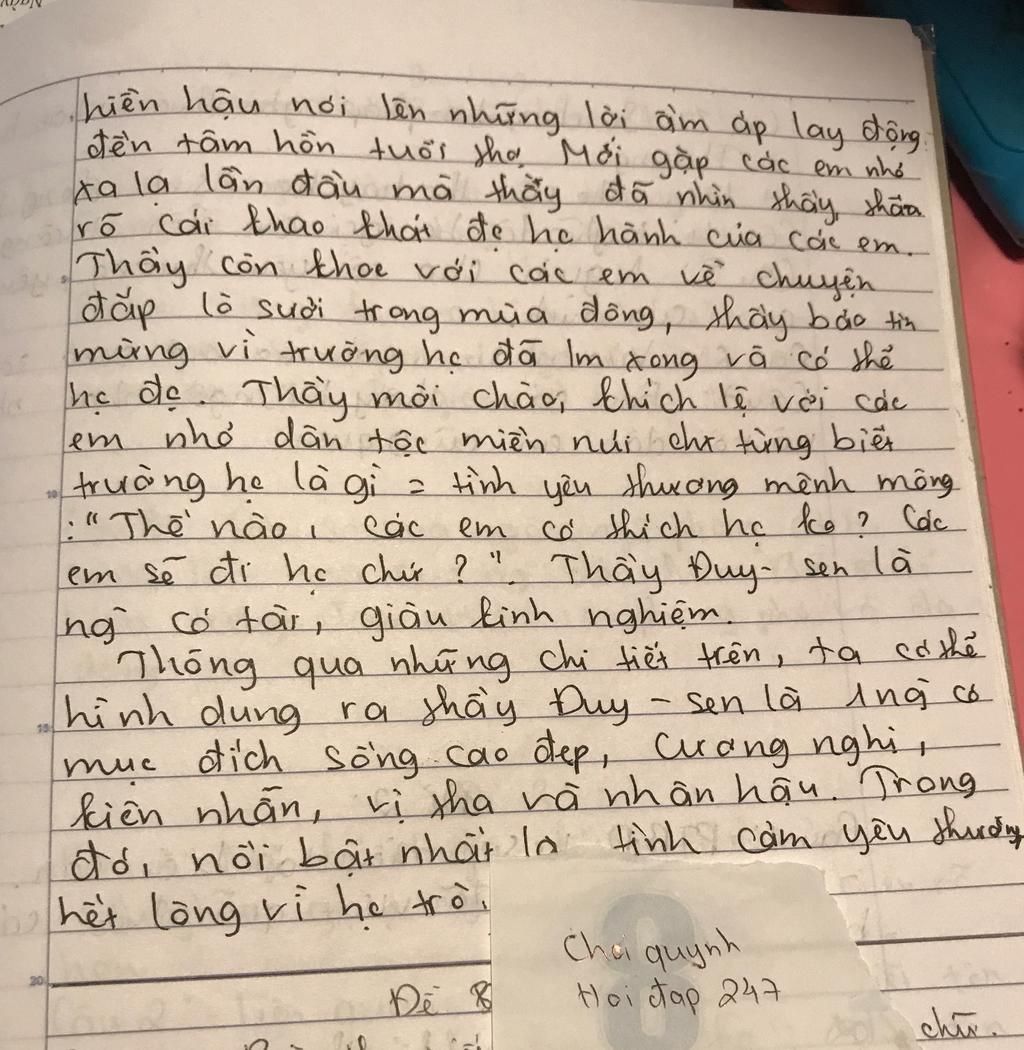 hiền hậu nói lên những lời ấm áp lay động
đến tâm hồn tuổi thơ. Mới gặp các em nhỏ
xa lạ lần đầu mà thầy đã nhìn thấy, thấu
rõ cái khao khát đc học hành của các em.
Thầy còn khoe với các em về chuyện
đắp lò sưởi trong mùa đông, thầy báo tin
mừng vì trường hc đã lm xong và có thể
hc đc. Thầy mời chào, khích lệ với các
em nhỏ dân tộc miền núi chx từng biết
trường hc là gì = tình yêu thương mênh mông
: "Thế nào, các em có thích hc ko? Các
em sẽ đi hc chứ?". Thầy Đuy-sen là
ng` có tài, giàu kinh nghiệm.
Thông qua những chi tiết trên, ta có thể
hình dung ra thầy Đuy-sen là 1 ng` có
mục đích sống cao đẹp, cương nghị,
kiên nhẫn, vị tha và nhân hậu. Trong
đó, nổi bật nhất là tình cảm yêu thương
hết lòng vì hc trò.
Đề 8
Chơi quynh
Hoi đap 247
chữ.